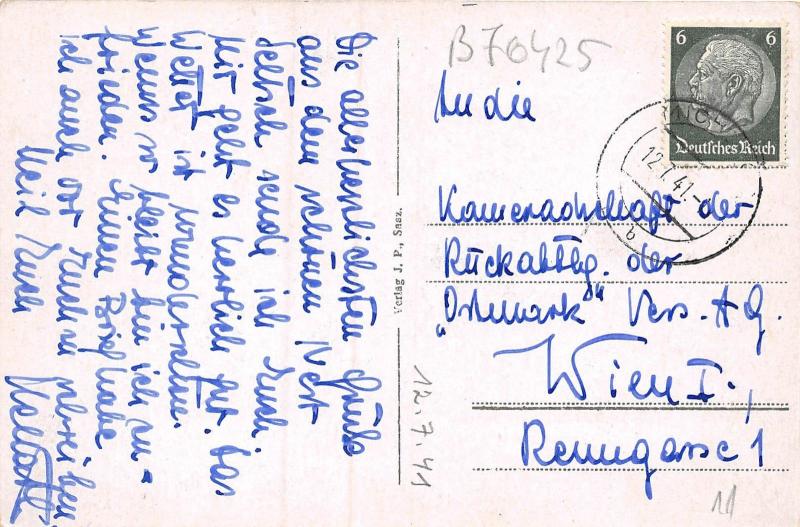 Die allerherzlichsten Grüße
aus dem schönen Nest
sende ich Euch.
Mir geht es herrlich gut. Das
Wetter ist wunderschön.
Wenns so bleibt bin ich zu-
frieden. Einen Brief habe
ich auch vor Euch zu schreiben
Heil Euch
Verlag J. P., Sasz.
B70425
6 6
Deutsches Reich
12.7.41
b
An die
Kameradschaft der
Rückabtlg. der
„Ostmark" Vers. A G.
Wien I.,
Renngasse 1
12.7.41
11